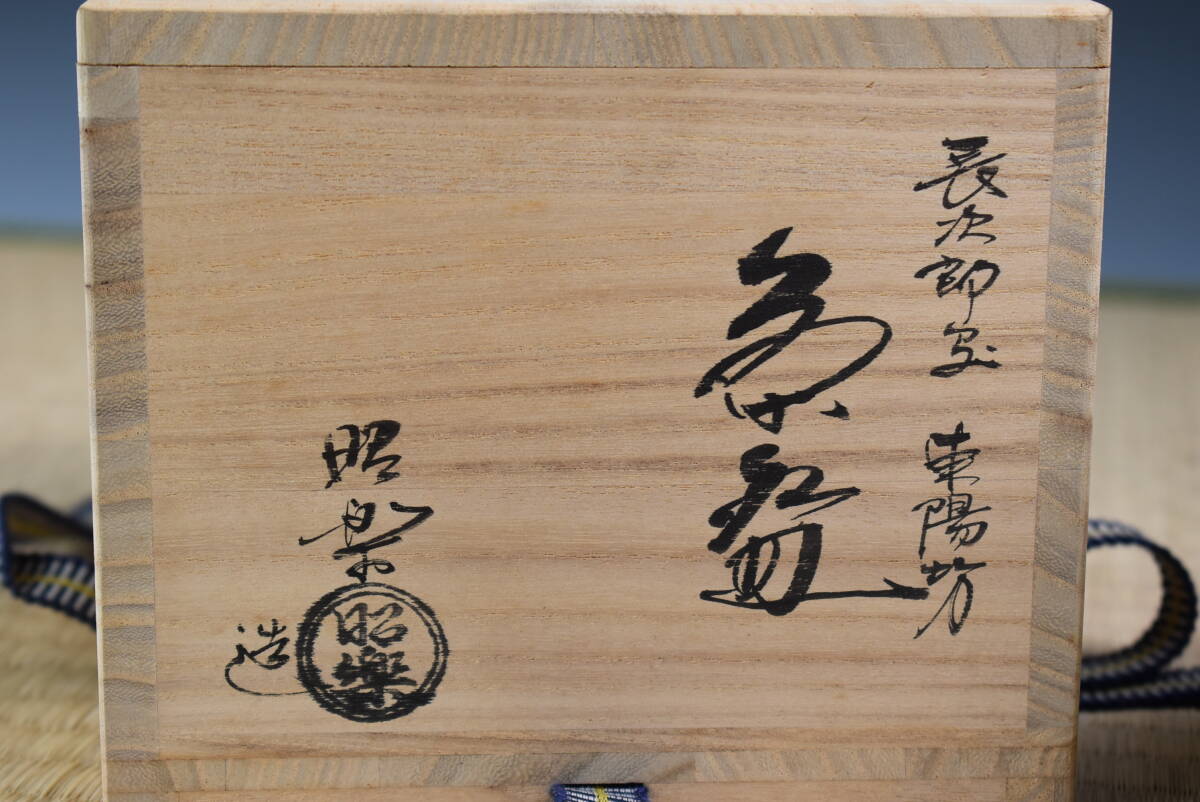 長次郎写 東陽坊
茶碗
昭楽
造
昭樂